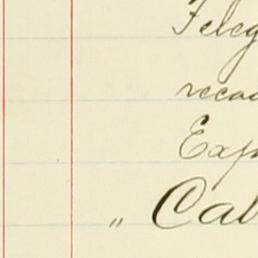 Teleg
recor
Exp
" Cal